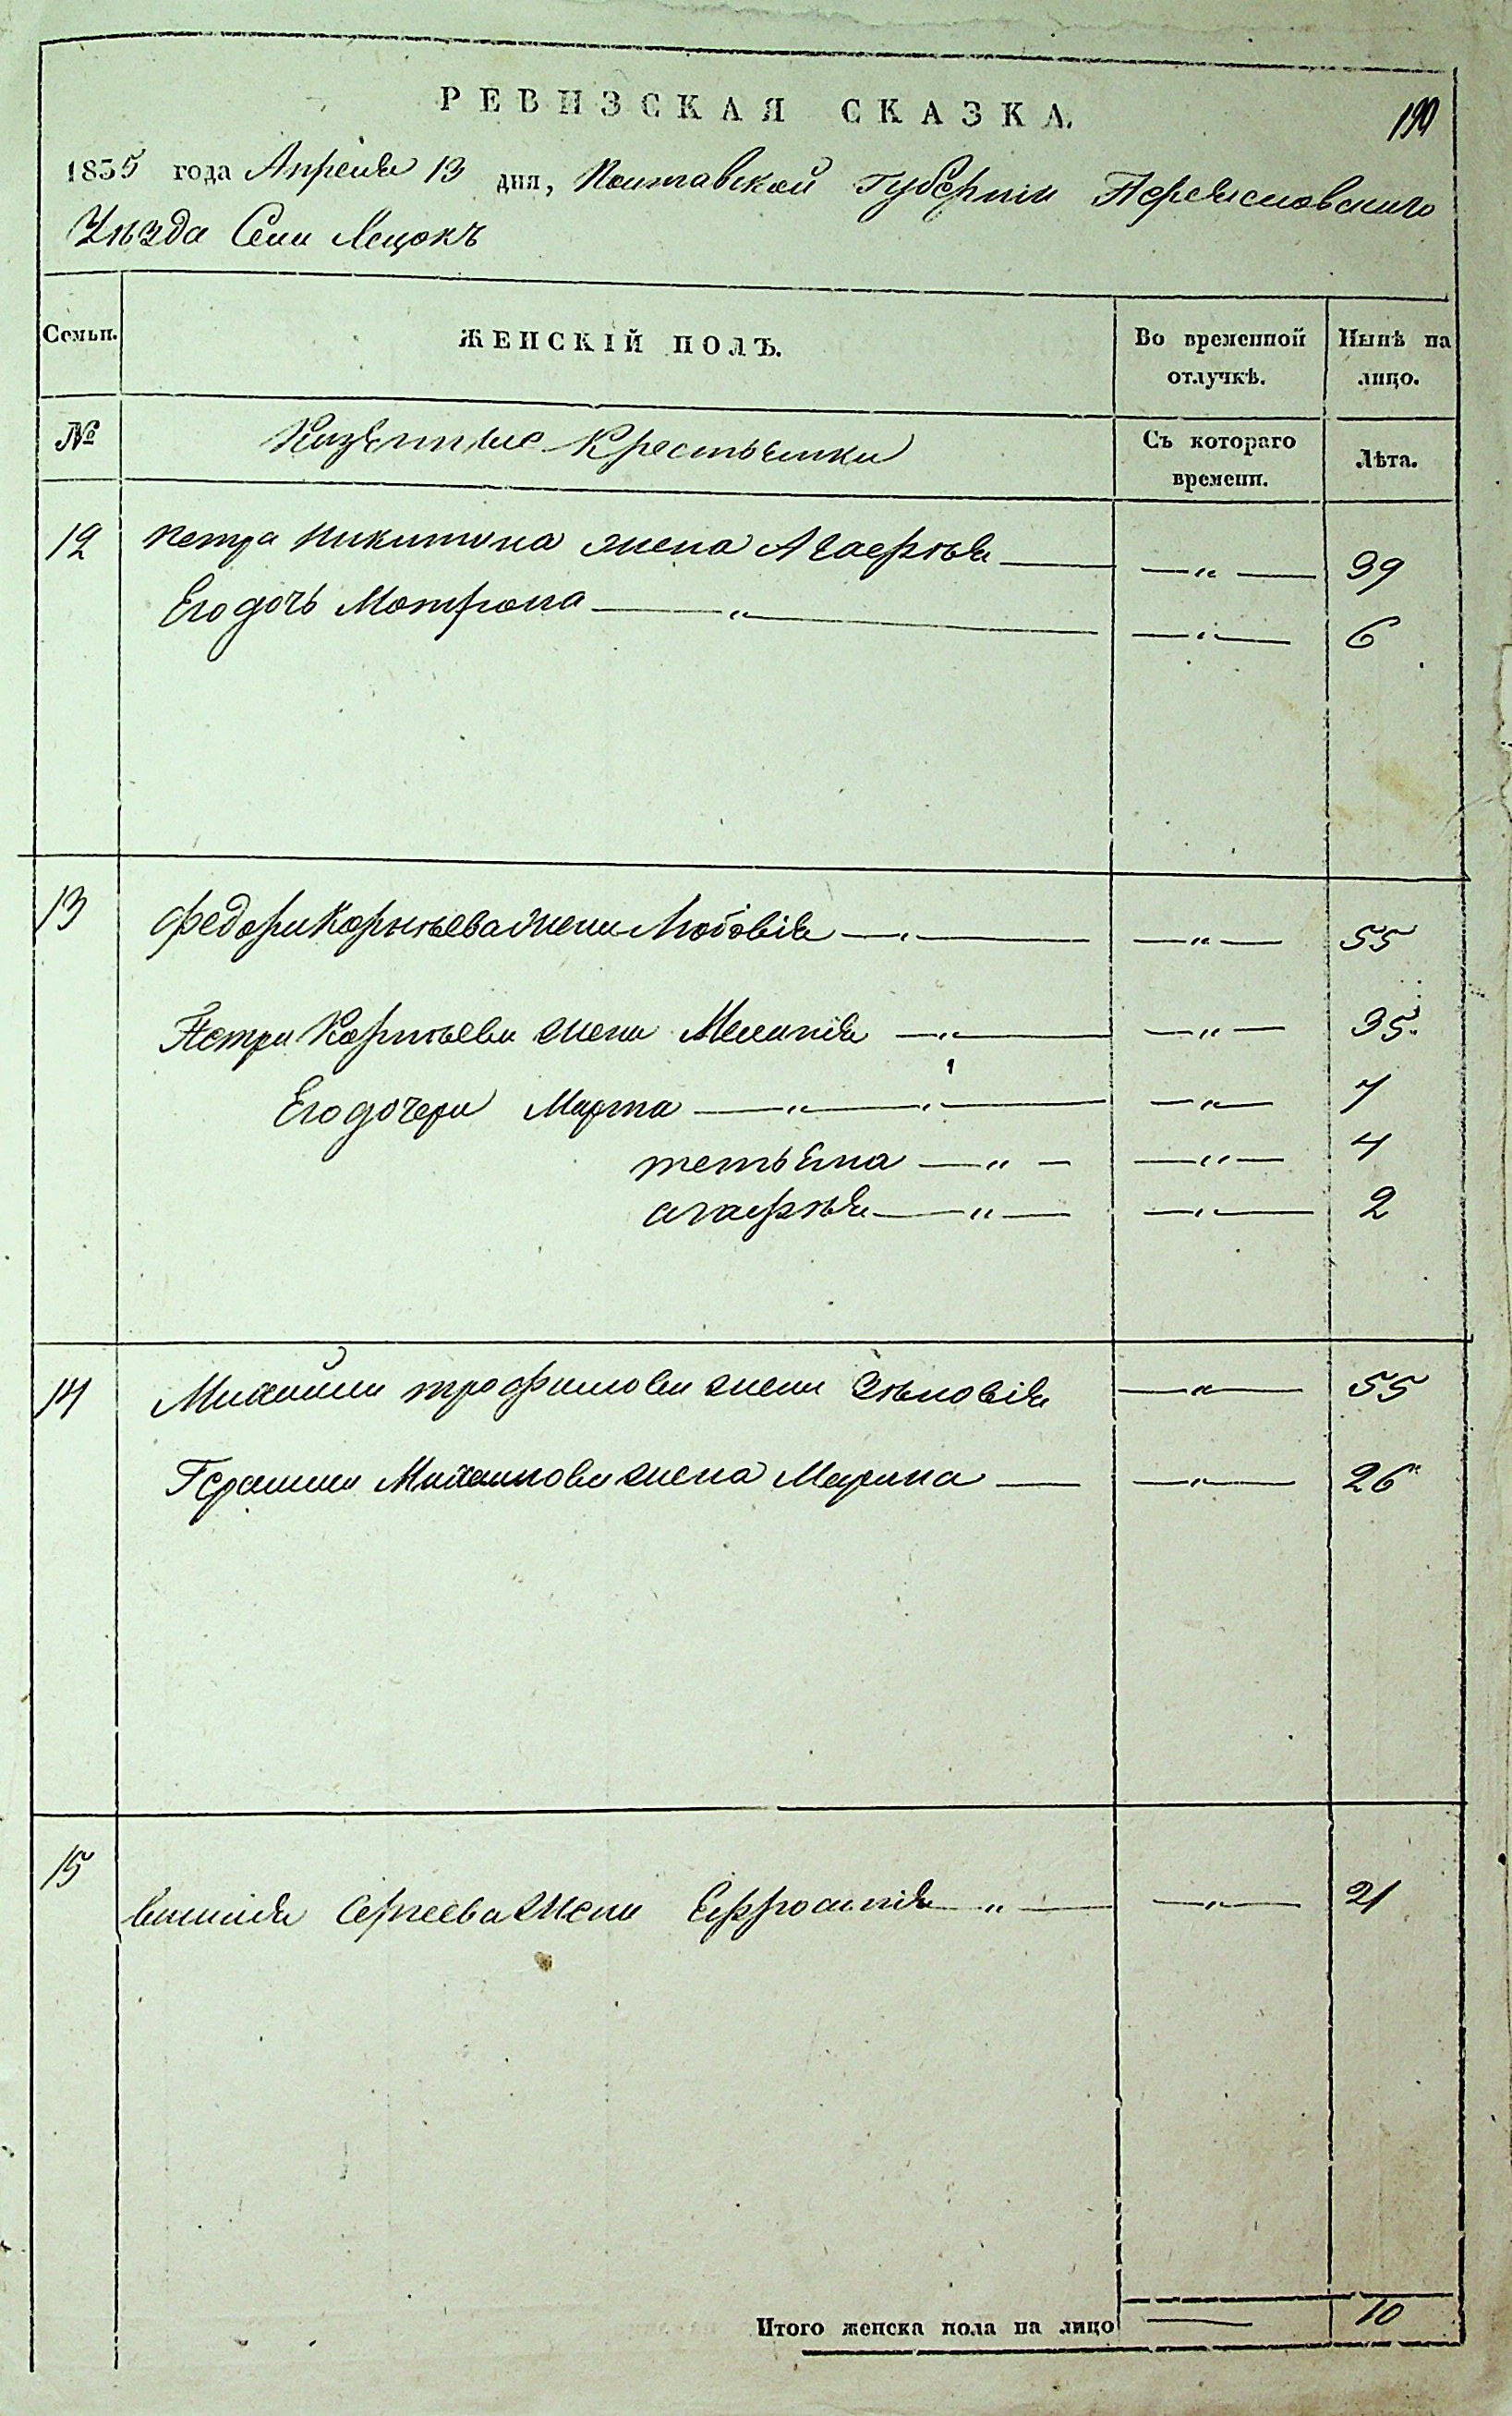 РЕВИЗСКАЯ СКАЗКА.
190
1835 года Апреля 13 дня, Полтавской Губерніи Переясловскаго
Уѣзда Села Лецокъ
Семьи. ЖЕНСКІЙ ПОЛЪ. Во временной отлучкѣ. Нынѣ на лицо.
№ Казенные Крестьянки Съ котораго времени. Лѣта.
12 Петра Никитина жена Агафія —"— 39
Его дочь Мотрона —"— —"— 6
13 Федора Корнѣева жена Любовія —"— —"— 55
Петра Корнѣева жена Меланія —"— —"— 35
Его дочери Марта —"— —"— 7
тетьяна —"— —"— 4
агафія —"— —"— 2
14 Михайла трофимова жена Зѣновія —"— 55
Герасима Михаилова жена Марина — —"— 26
15 василія Сергеева жена Ефросинія "— —"— 21
Итого женска пола на лицо — 10